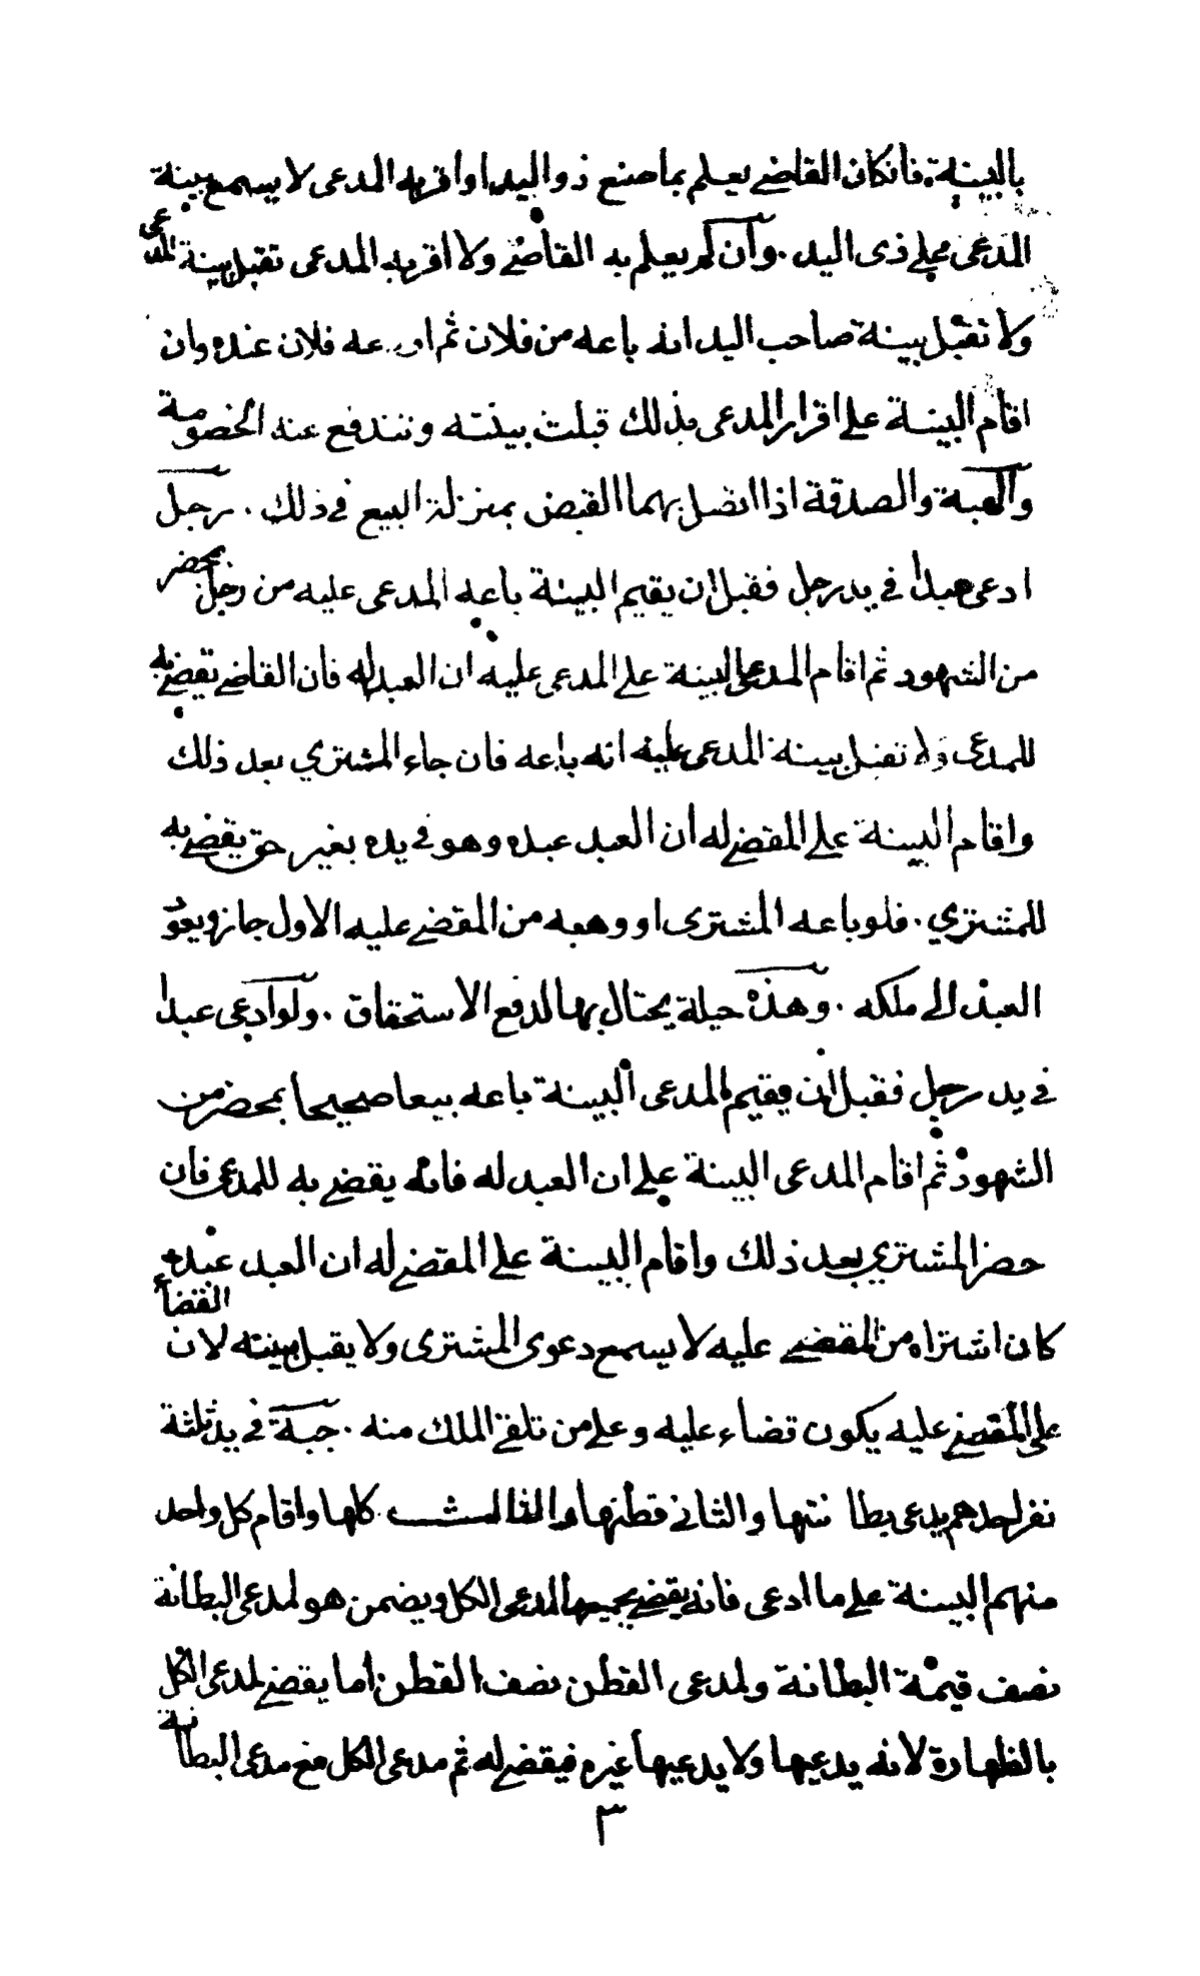 بالبينة فانكان القاضي يعلم بما صنع ذو اليد او اقر به المدعى لا يسمع بينة
المدعى على ذى اليد . وان لم يعلم به القاضي ولا اقر به المدعى تقبل بينة المدعى
ولا تقبل بينة صاحب اليد انه باعه من فلان ثم اودعه فلان عنده وان
اقام البينة على اقرار المدعى بذلك قبلت بينته وتندفع عنه الخصومة
والهبة والصدقة اذا اتصل بهما القبض بمنزلة البيع في ذلك . رجل
ادعى عبدا في يد رجل فقبل ان يقيم البينة باعه المدعى عليه من رجل بمحضر
من الشهود ثم اقام المدعى البينة على المدعى عليه ان العبد له فان القاضي يقضي به
للمدعى ولا تقبل بينة المدعى عليه انه باعه فان جاء المشتري بعد ذلك
واقام البينة على المقضي له ان العبد عبده وهو في يده بغير حق يقضي به
للمشتري . فلو باعه المشترى او وهبه من المقضي عليه الاول جاز ويعود
العبد الى ملكه . وهذه حيلة يحتال بها لدفع الاستحقاق . ولو ادعى عبدا
في يد رجل فقبل ان يقيم المدعى البينة باعه بيعا صحيحا بمحضر من
الشهود ثم اقام المدعى البينة على ان العبد له فانه يقضي به للمدعى فان
حضر المشتري بعد ذلك واقام البينة على المقضي له ان العبد عبده
كان اشتراه من المقضي عليه لا يسمع دعوى المشترى ولا يقبل بينته لان القضاء
على المقضي عليه يكون قضاء عليه وعلى من تلقى الملك منه . جبة في يد ثلثة
نفر احدهم يدعى بطانتها والثاني قطنها والثالث كلها واقام كل واحد
منهم البينة على ما ادعى فانه يقضي بجميعها لمدعى الكل ويضمن هو لمدعى البطانة
نصف قيمة البطانة ولمدعى القطن نصف القطن اما يقضي لمدعى الكل
بالظهارة لانه يدعيها ولا يدعيها غيره فيقضي له ثم مدعى الكل مع مدعى البطانة
٣